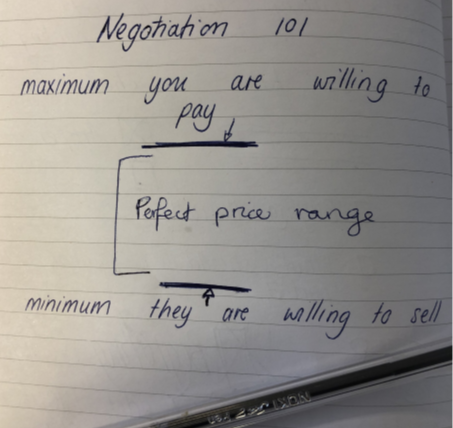 Negotiation 101
maximum you are willing to
pay
Perfect price range
minimum they are willing to sell